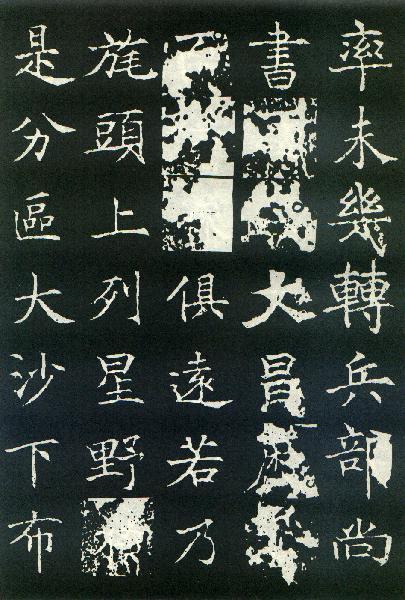 率未幾轉兵部尚
書大昌
俱遠若乃
旄頭上列星野
是分區大沙下布